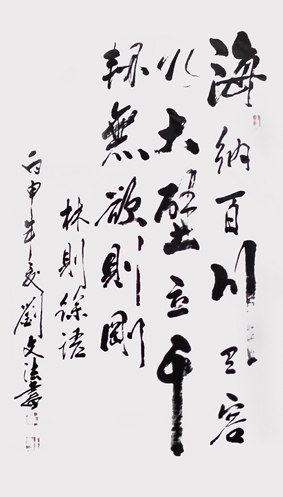 海納百川有容
乃大壁立千
仞無欲則剛
林則徐語
丙申年夏劉文法書